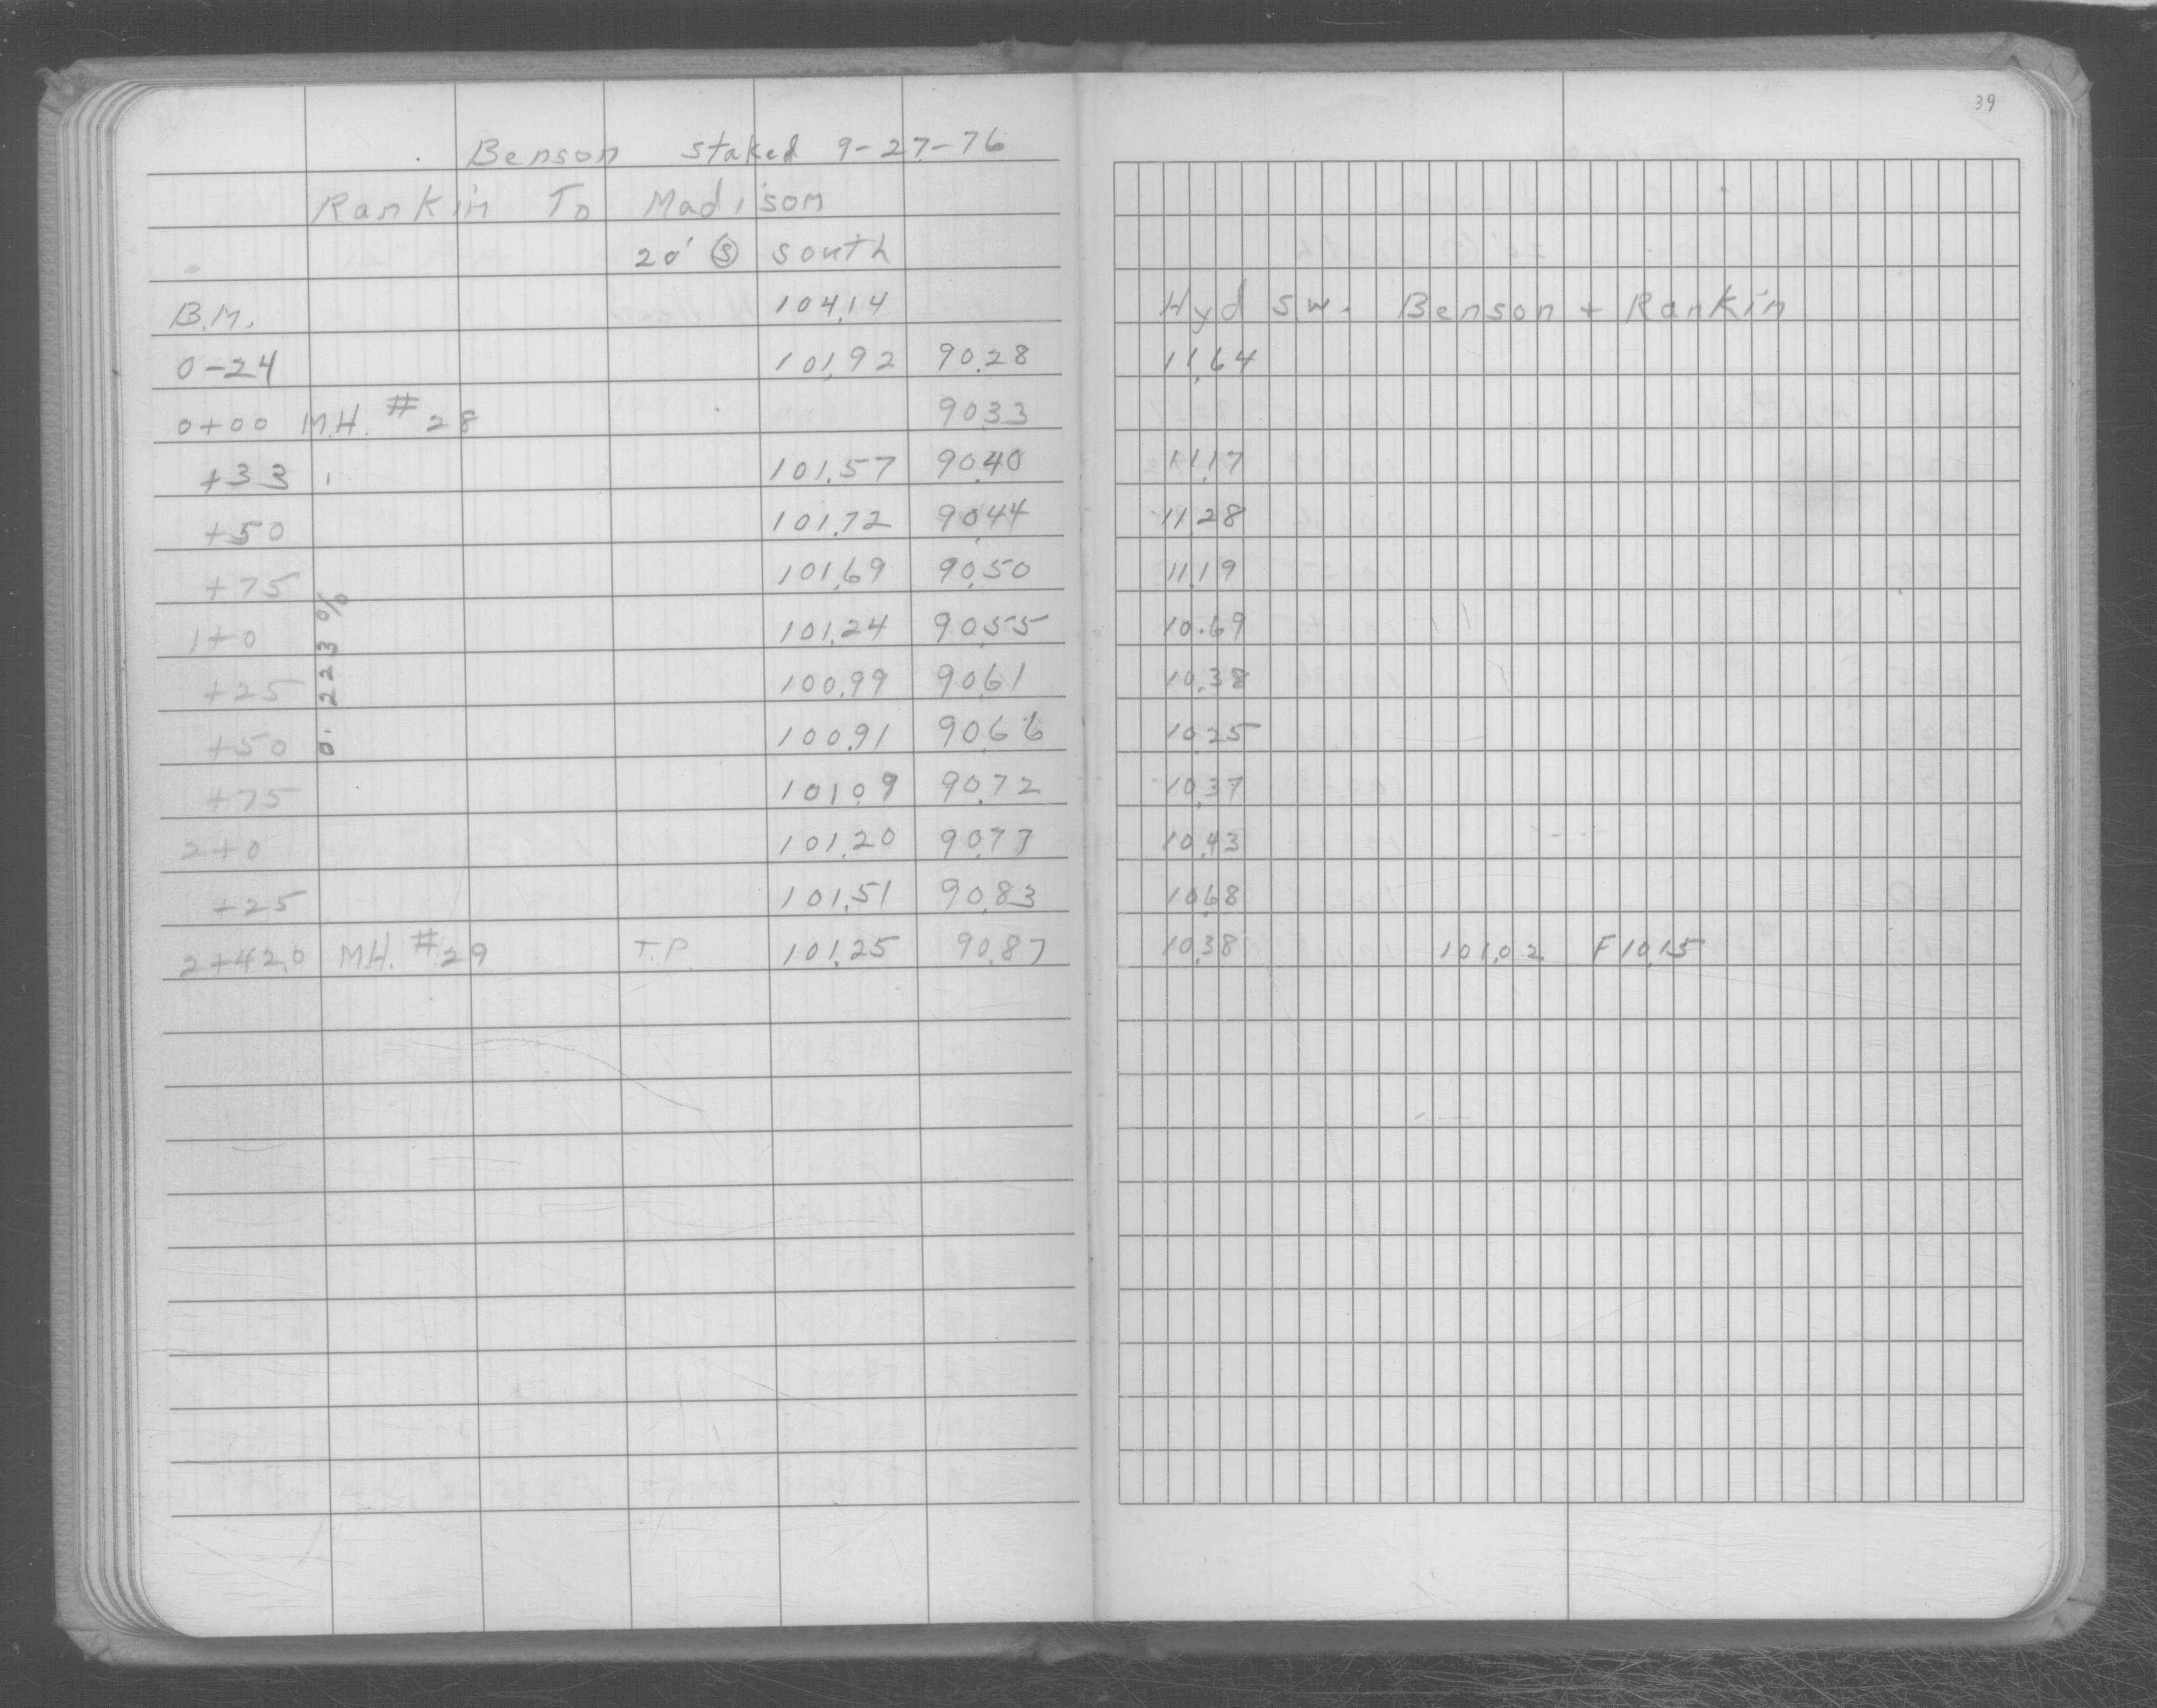 39
Benson staked 9-27-76
Rankin To Madison
20' Ⓢ south
B.M. 104.14 Hyd S.W. Benson + Rankin
0-24 101.92 90.28 11.64
0+00 M.H. #28 90.33
+33 101.57 90.40 11.17
+50 101.72 90.44 11.28
+75 101.69 90.50 11.19
1+0 101.24 90.55 10.69
+25 100.99 90.61 10.38
+50 100.91 90.66 10.25
+75 101.09 90.72 10.37
2+0 101.20 90.77 10.43
+25 101.51 90.83 10.68
2+42.0 M.H. #29 T.P. 101.25 90.87 10.38 101.02 F 10.15
0.223 %